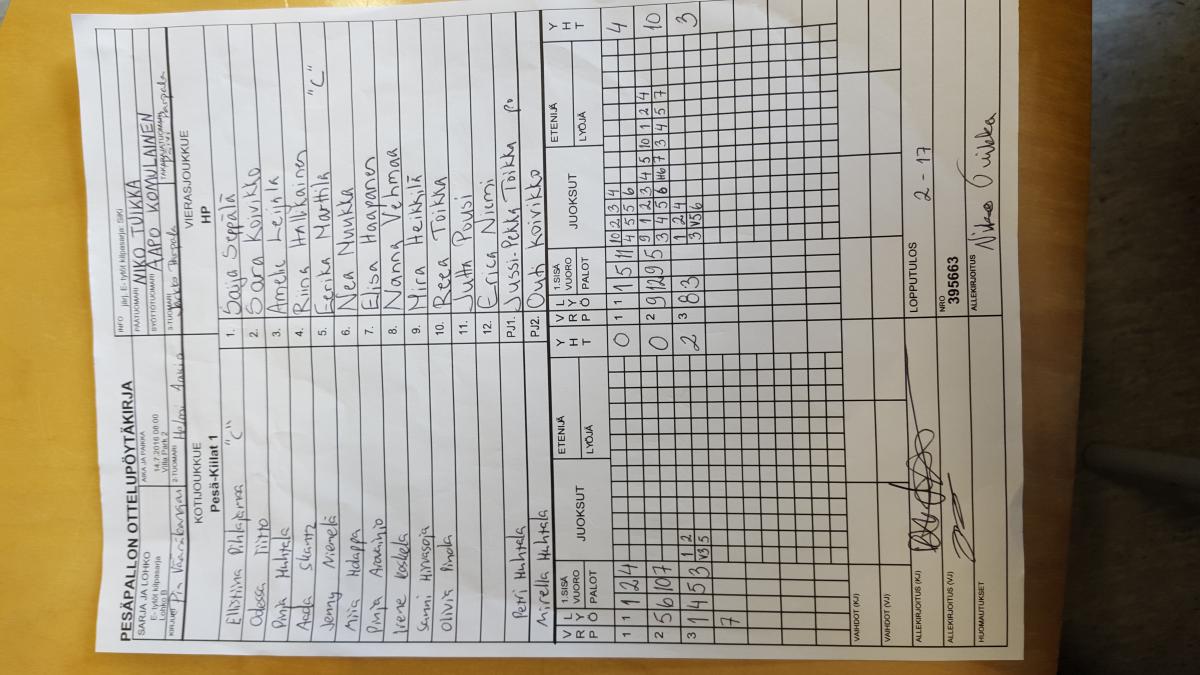 PESÄPALLON OTTELUPÖYTÄKIRJA
SARJA JA LOHKO
E- tytöt kilpasarja
Lohko B
AIKA JA PAIKKA
14.7.2016 08:00
Villa Park 2
INFO järj. E- tytöt kilpasarja: SiiKi
PÄÄTUOMARI NIKO TUIKKA
SYÖTTÖTUOMARI AAPO KOMULAINEN
KIRJURI Pia
2-TUOMARI Helmi
3-TUOMARI Parpala
TAKARAJATUOMARI Päivi Parpala
KOTIJOUKKUE
Pesä-Kiilat 1
VIERASJOUKKUE
HP
Ellistiina Pihlajamaa "C"
1. Saija Seppälä
Odessa Tiitto
2. Saara Koivikko
Pinja Huhtala
3. Amelie Leinla
Aada Skantz
4. Riina Hallikainen
Jenny Niemelä
5. Eerika Marttila "C"
Miia Holappa
6. Nea Muukka
Pinja Aravainio
7. Elisa Haapanen
Irene Koskela
8. Nanna Vehmaa
Sanni Hirvasoja
9. Mira Heikkilä
Olivia Pinola
10. Reea Toikka
11. Jutta Pousi
12. Erica Niemi
Petri Huhtala
PJ1. Jussi-Pekka Toikka po
Mirella Huhtala
PJ2. Outi Koivikko
V R P
L Y Ö
1.SISÄ
VUORO
PALOT
JUOKSUT
ETENIJÄ
LYÖJÄ
Y H T
V R P
L Y Ö
1.SISÄ
VUORO
PALOT
JUOKSUT
ETENIJÄ
LYÖJÄ
Y H T
1 1 1 2 4
0
1 1 1 5 11
10 2 3 4
4 5 5 6
4
2 5 6 10 7
0
2 9 12 9 5
9 1 2 3 4 5 10 1 2 4
3 4 5 6 H6 7 3 4 5 7
10
3 1 4 5 3
1 2
V3 5
2
3 8 3
1 2 4
3 V5 6
3
7
VAIHDOT (KJ)
VAIHDOT (VJ)
ALLEKIRJOITUS (KJ)
LOPPUTULOS
2 - 17
ALLEKIRJOITUS (VJ)
NRO
395663
HUOMAUTUKSET
ALLEKIRJOITUS
Niko Tuikka